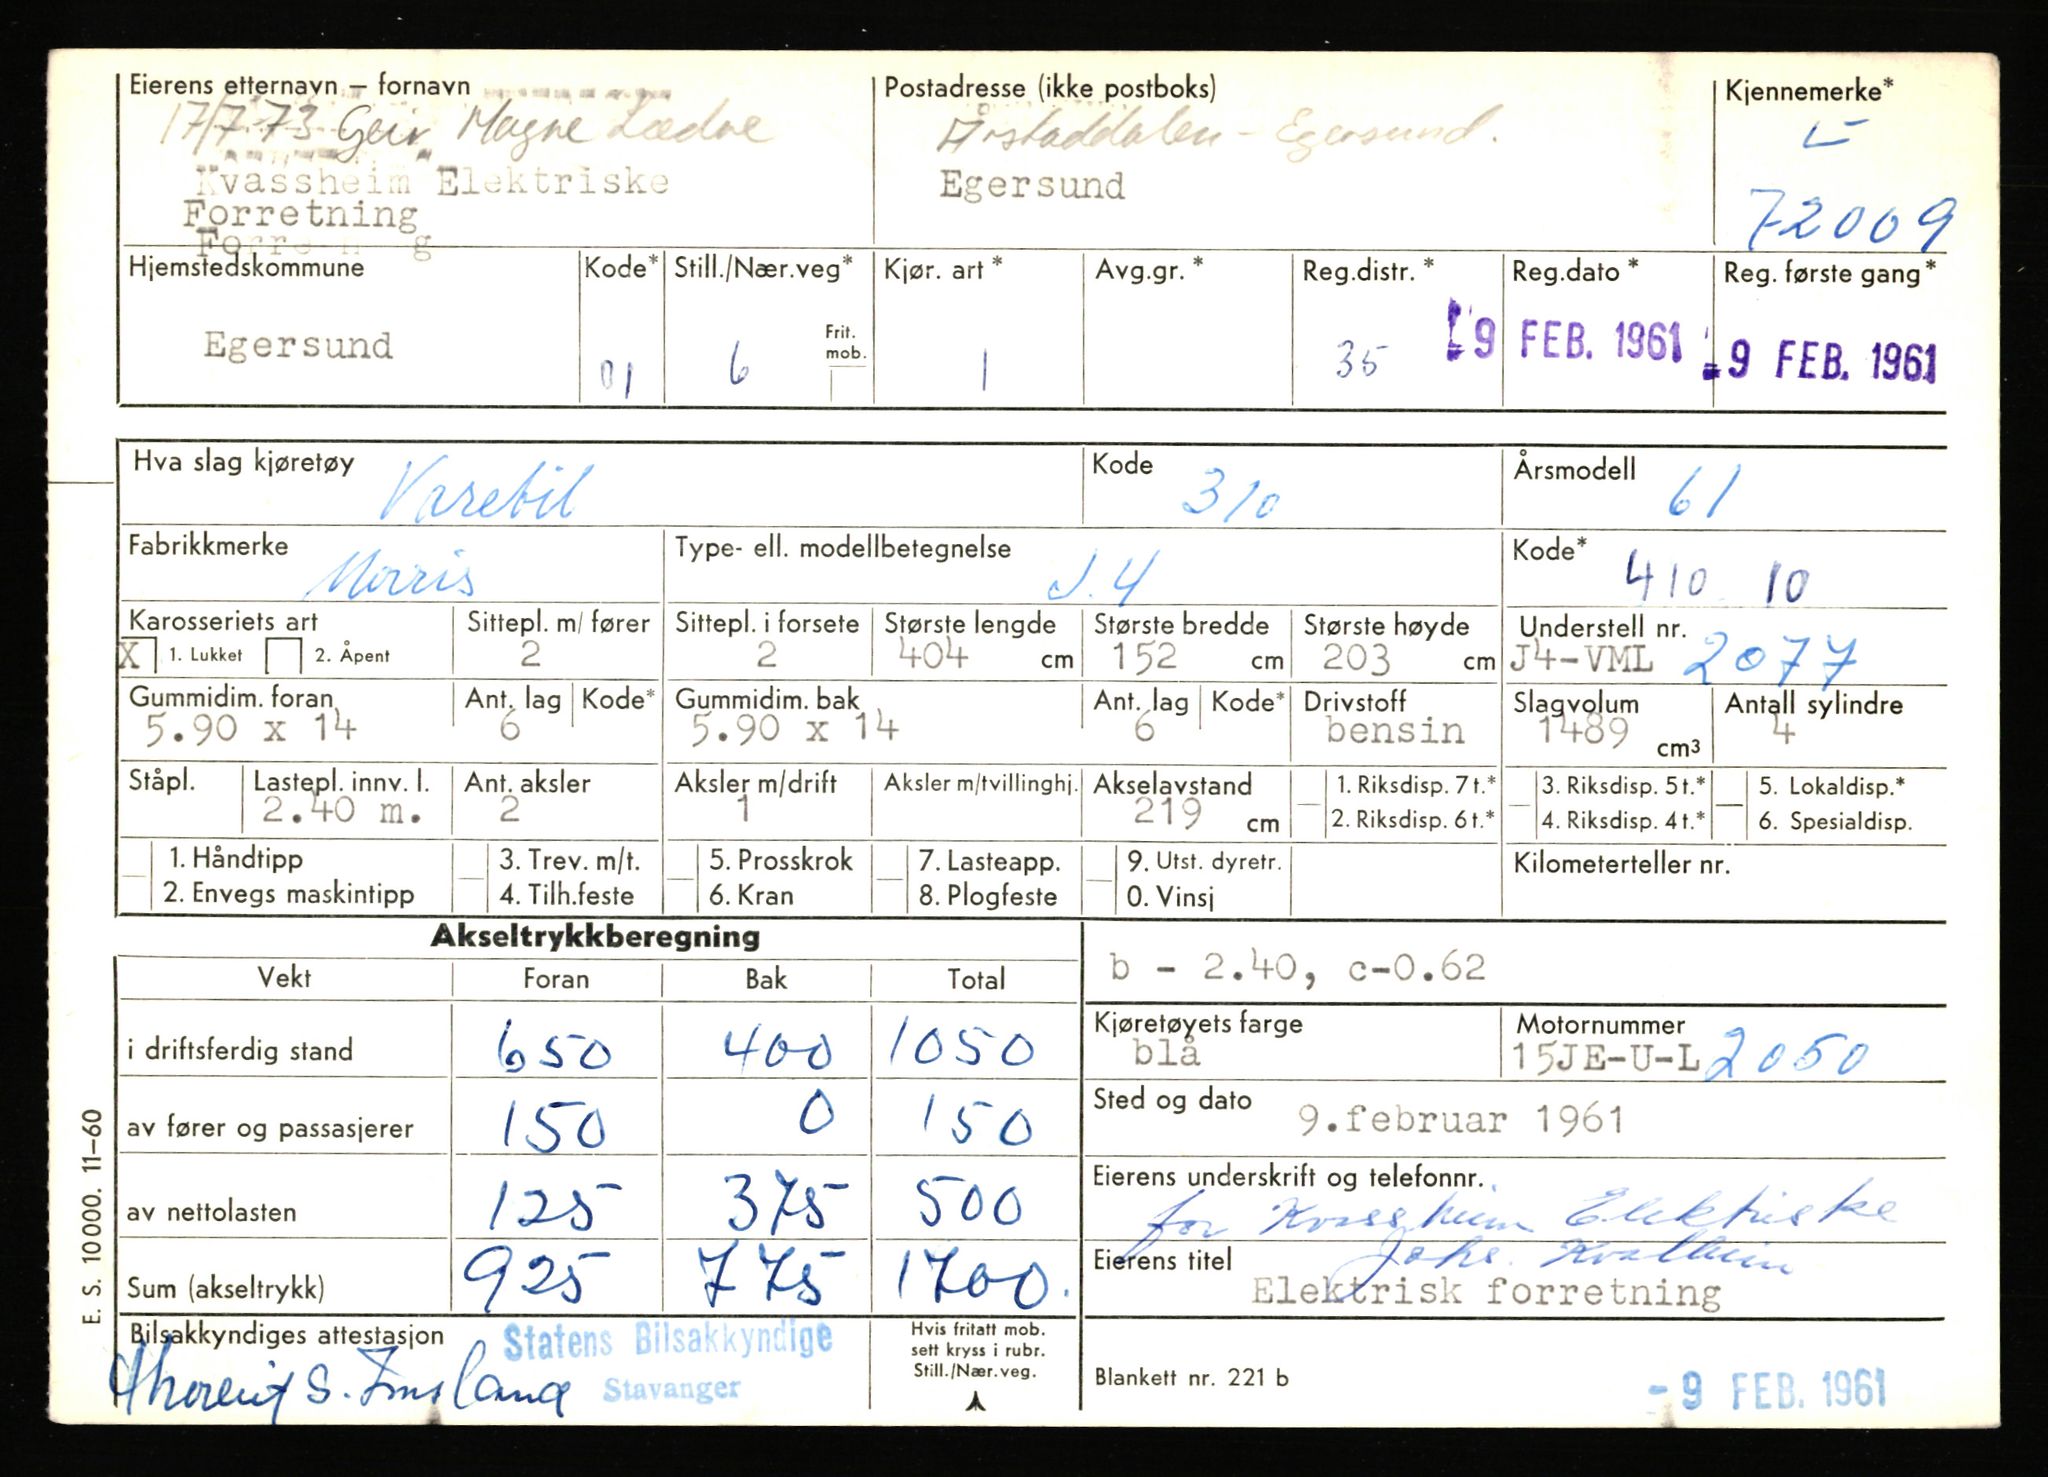 Eierens etternavn – fornavn
17/7-73 Geir Magne
Kvassheim Elektriske
Forretning
Postadresse (ikke postboks)
Årstaddalen - Egersund.
Egersund
Kjennemerke*
L
72009
Hjemstedskommune
Egersund
Kode*
01
Still./Nær.veg*
6
Frit.
mob.
Kjør. art *
1
Avg.gr. *
Reg.distr. *
35
Reg.dato *
9 FEB. 1961
Reg. første gang*
- 9 FEB. 1961
Hva slag kjøretøy
Varebil
Kode
310
Årsmodell
61
Fabrikkmerke
Morris
Type- ell. modellbetegnelse
J.4
Kode*
410 10
Karosseriets art
X 1. Lukket 2. Åpent
Sittepl. m/ fører
2
Sittepl. i forsete
2
Største lengde
404 cm
Største bredde
152 cm
Største høyde
203 cm
Understell nr.
J4-VML 2077
Gummidim. foran
5.90 x 14
Ant. lag
6
Kode*
Gummidim. bak
5.90 x 14
Ant. lag
6
Kode*
Drivstoff
bensin
Slagvolum
1489 cm3
Antall sylindre
4
Ståpl.
Lastepl. innv. l.
2.40 m.
Ant. aksler
2
Aksler m/drift
1
Aksler m/tvillinghj.
Akselavstand
219 cm
1. Riksdisp. 7 t.*
2. Riksdisp. 6 t.*
3. Riksdisp. 5 t.*
4. Riksdisp. 4 t.*
5. Lokaldisp.*
6. Spesialdisp.
1. Håndtipp
2. Envegs maskintipp
3. Trev. m/t.
4. Tilh.feste
5. Prosskrok
6. Kran
7. Lasteapp.
8. Plogfeste
9. Utst. dyretr.
0. Vinsj
Kilometerteller nr.
Akseltrykkberegning
Vekt Foran Bak Total
i driftsferdig stand 650 400 1050
av fører og passasjerer 150 0 150
av nettolasten 125 375 500
Sum (akseltrykk) 925 775 1700.
b - 2.40, c-0.62
Kjøretøyets farge
blå
Motornummer
15JE-U-L 2050
Sted og dato
9.februar 1961
Eierens underskrift og telefonnr.
for Kvassheim Elektriske
Johs.
Eierens titel
Elektrisk forretning
Bilsakkyndiges attestasjon
Statens Bilsakkyndige
Stavanger
Hvis fritatt mob.
sett kryss i rubr.
Still./Nær.veg.
Blankett nr. 221 b
- 9 FEB. 1961
E. S. 10000. 11–60